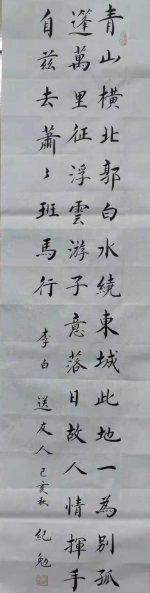 青山橫北郭白水繞東城此地一為別孤
蓬萬里征浮雲游子意落日故人情揮手
自茲去蕭〻班馬行
李白 送友人 己亥秋 紀勉